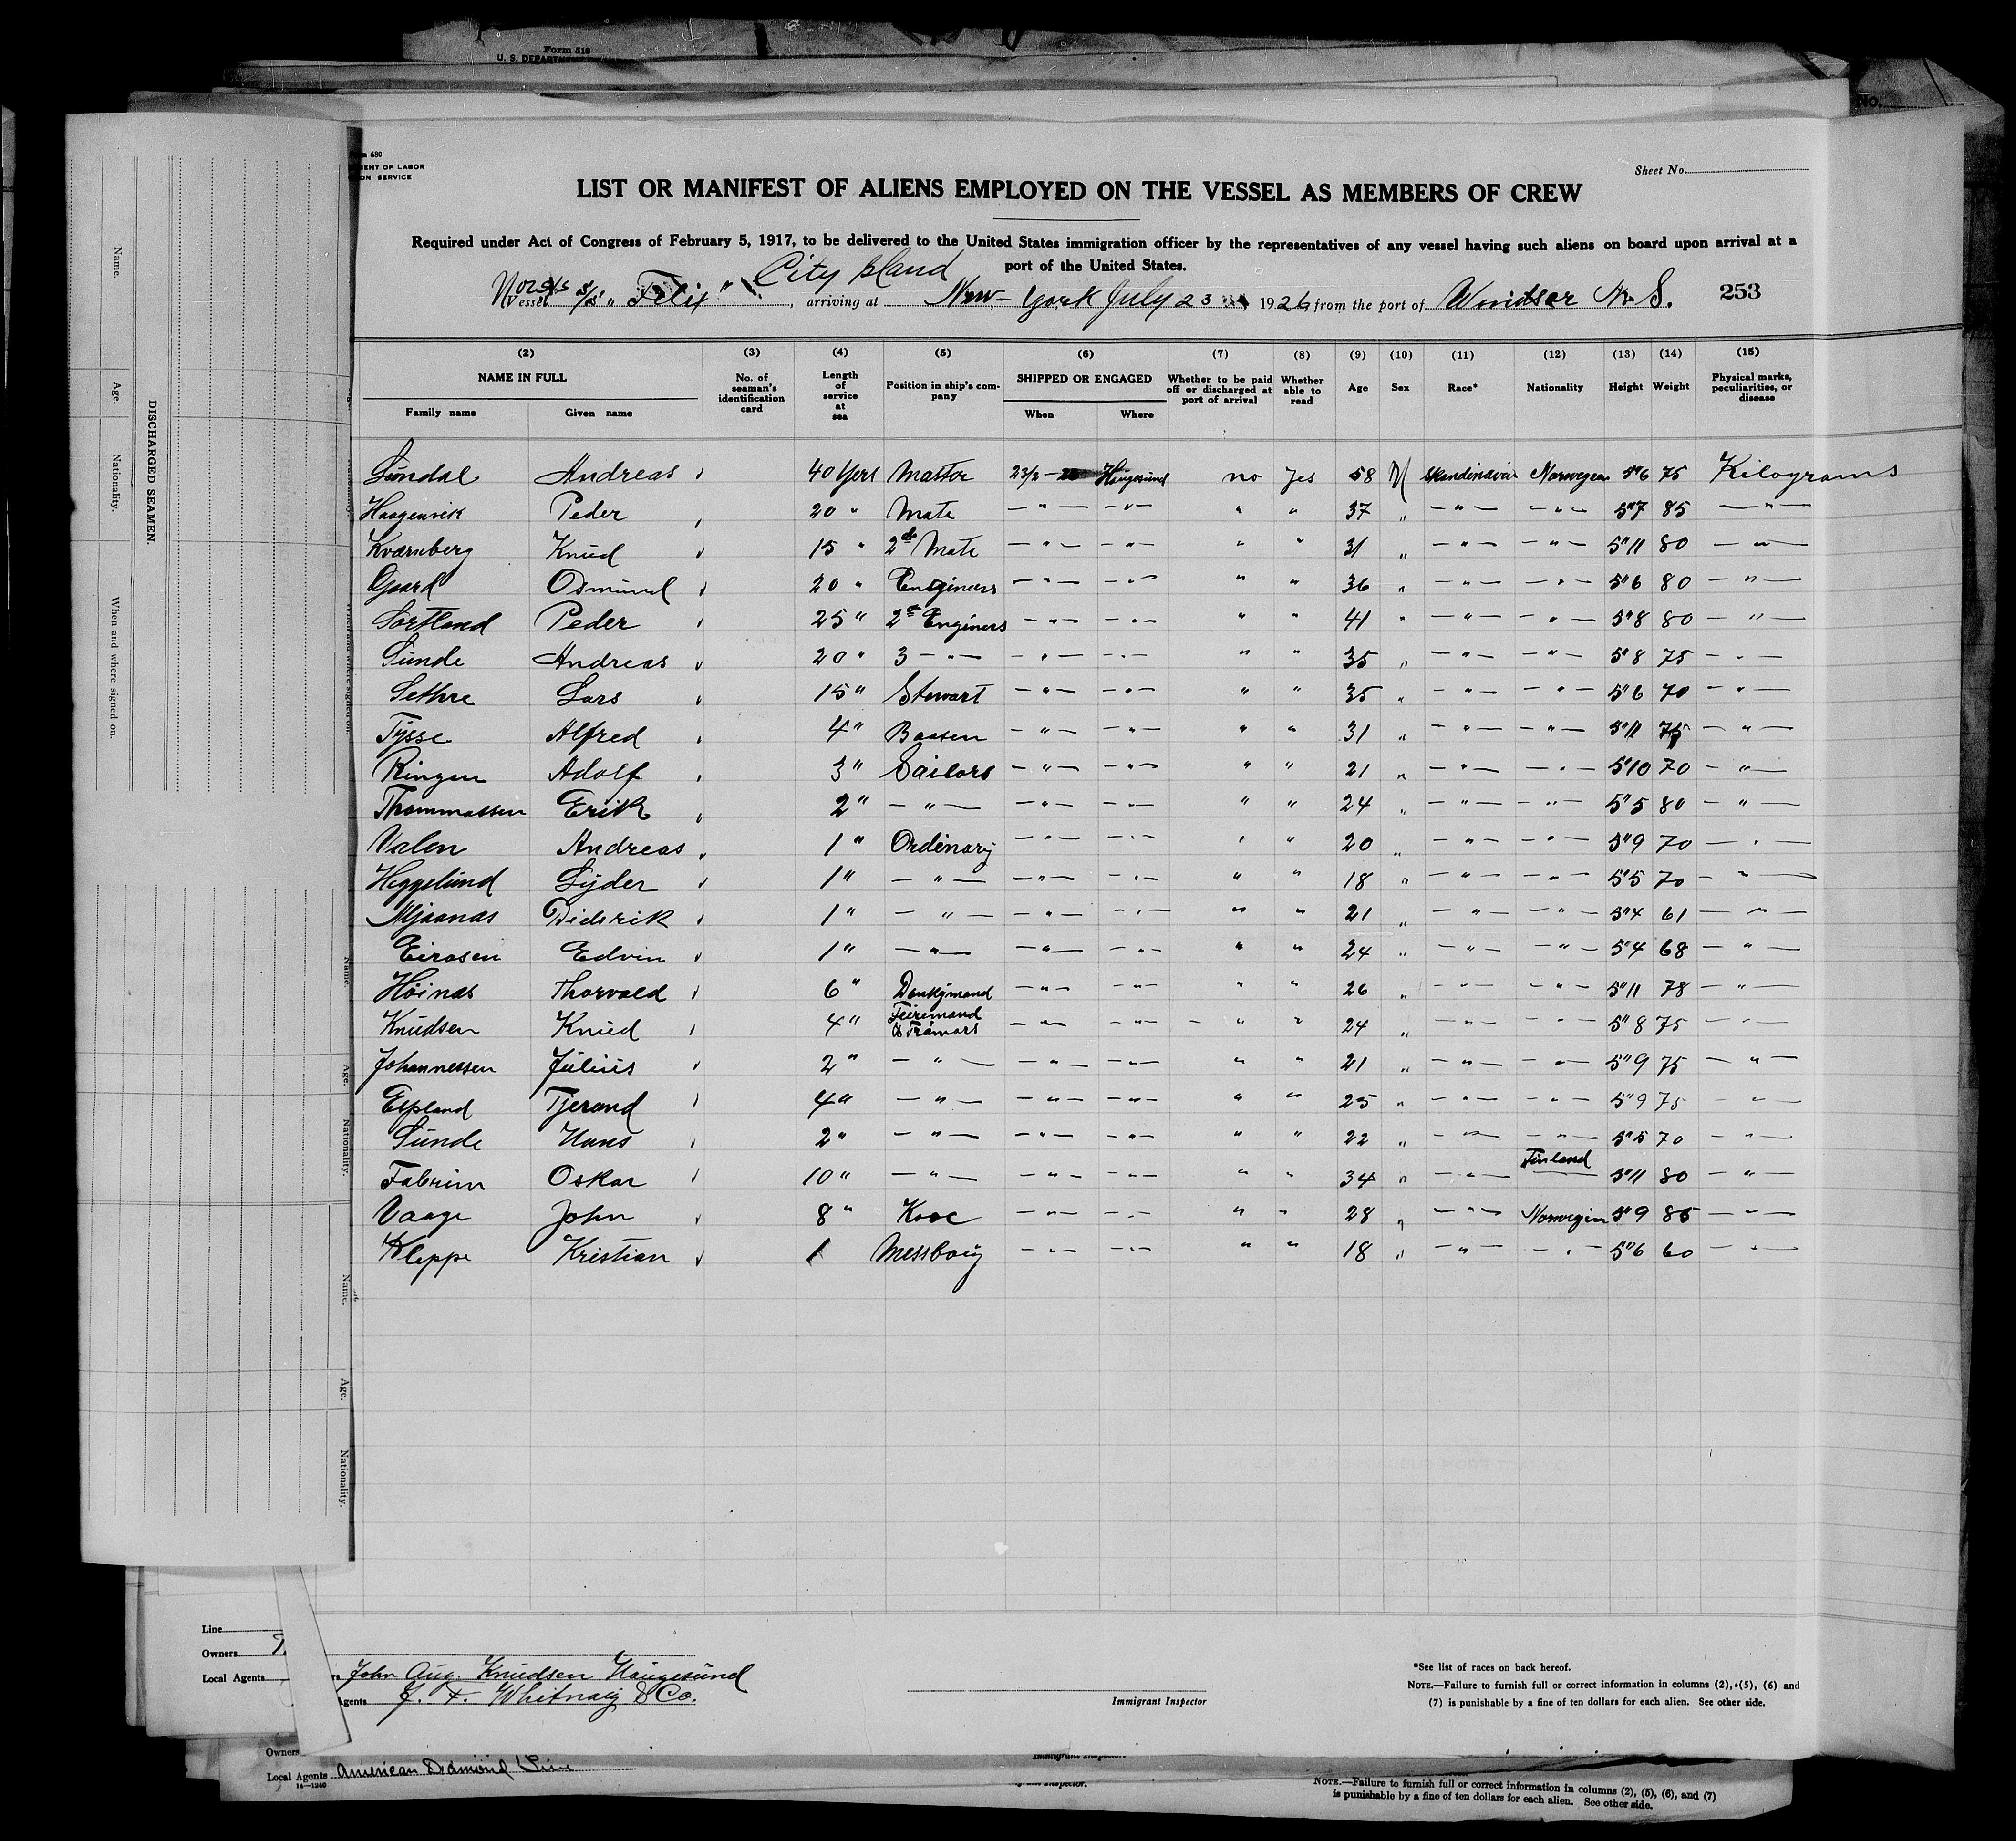 Form 316
U. S. DEPARTMENT
No.
DISCHARGED SEAMEN.
Name.
Age.
Nationality.
When and where signed on.
680
MENT OF LABOR
ON SERVICE
Sheet No.
LIST OR MANIFEST OF ALIENS EMPLOYED ON THE VESSEL AS MEMBERS OF CREW
Required under Act of Congress of February 5, 1917, to be delivered to the United States immigration officer by the representatives of any vessel having such aliens on board upon arrival at a
port of the United States.
City Island
Vessel Norsk S/S "Felix", arriving at New-York July 23, 1926, from the port of Windsor N. S. 253
(2) (3) (4) (5) (6) (7) (8) (9) (10) (11) (12) (13) (14) (15)
NAME IN FULL No. of seaman's identification card Length of service at sea Position in ship's company SHIPPED OR ENGAGED Whether to be paid off or discharged at port of arrival Whether able to read Age Sex Race* Nationality Height Weight Physical marks, peculiarities, or disease
Family name Given name When Where
Sundal Andreas 40 Yers Mastor 23/2 - Haugesund no Yes 58 M Skandinavia Norwegian 5"6 75 Kilograms
Haagensvik Peder 20 " Mate - " - - " - " " 37 " - " - - " - 5"7 85 - " -
Kvarnberg Knud 15 " 2d Mate - " - - " - " " 31 " - " - - " - 5"11 80 - " -
Gaard Osmund 20 " Engineers - " - - " - " " 36 " - " - - " - 5"6 80 - " -
Sortland Peder 25 " 2d Enginers - " - - " - " " 41 " - " - - " - 5"8 80 - " -
Sunde Andreas 20 " 3 - " - - " - - " - " " 35 " - " - - " - 5"8 75 - " -
Sethre Lars 15 " Stewart - " - - " - " " 35 " - " - - " - 5"6 70 - " -
Tysse Alfred 4 " Baasen - " - - " - " " 31 " - " - - " - 5"11 75 - " -
Ringen Adolf 3 " Sailors - " - - " - " " 21 " - " - - " - 5"10 70 - " -
Thommassen Erik 2 " - " - - " - - " - " " 24 " - " - - " - 5"5 80 - " -
Valen Andreas 1 " Ordinary - " - - " - " " 20 " - " - - " - 5"9 70 - " -
Heggelund Lyder 1 " - " - - " - - " - " " 18 " - " - - " - 5"5 70 - " -
Mjaanas Didrik 1 " - " - - " - - " - " " 21 " - " - - " - 5"4 61 - " -
Eirosen Edvin 1 " - " - - " - - " - " " 24 " - " - - " - 5"4 68 - " -
Höinas Thorvald 6 " Donkymand - " - - " - " " 26 " - " - - " - 5"11 78 - " -
Knudsen Knud 4 " Feiremand & Trimars - " - - " - - " " 24 " - " - - " - 5"8 75 - " -
Johannessen Julius 2 " - " - - " - - " - " " 21 " - " - - " - 5"9 75 - " -
Tjerand 4 " - " - - " - - " - " " 25 " - " - - " - 5"9 75 - " -
Sunde Hans 2 " - " - - " - - " - " " 22 " - " - - " - 5"5 70 - " -
Fabrim Oskar 10 " - " - - " - - " - " " 34 " - " - Finland 5"11 80 - " -
Vaage John 8 " Kooc - " - - " - " " 28 " - " - Norwegin 5"9 85 - " -
Kleppe Kristian 1 Messboiy - " - - " - " " 18 " - " - - " - 5"6 60 - " -
Name.
Age.
Nationality.
Name.
Age.
Nationality.
Line
Owners
Local Agents
John Aug. Knudsen Haugesund
Agents J. F. Whitnaiy & Co.
Immigrant Inspector
*See list of races on back hereof.
NOTE.—Failure to furnish full or correct information in columns (2), (5), (6) and
(7) is punishable by a fine of ten dollars for each alien. See other side.
Owners
Local Agents American Diamond Line
14—1240
Immigrant Inspector.
NOTE.—Failure to furnish full or correct information in columns (2), (5), (6), and (7)
is punishable by a fine of ten dollars for each alien. See other side.